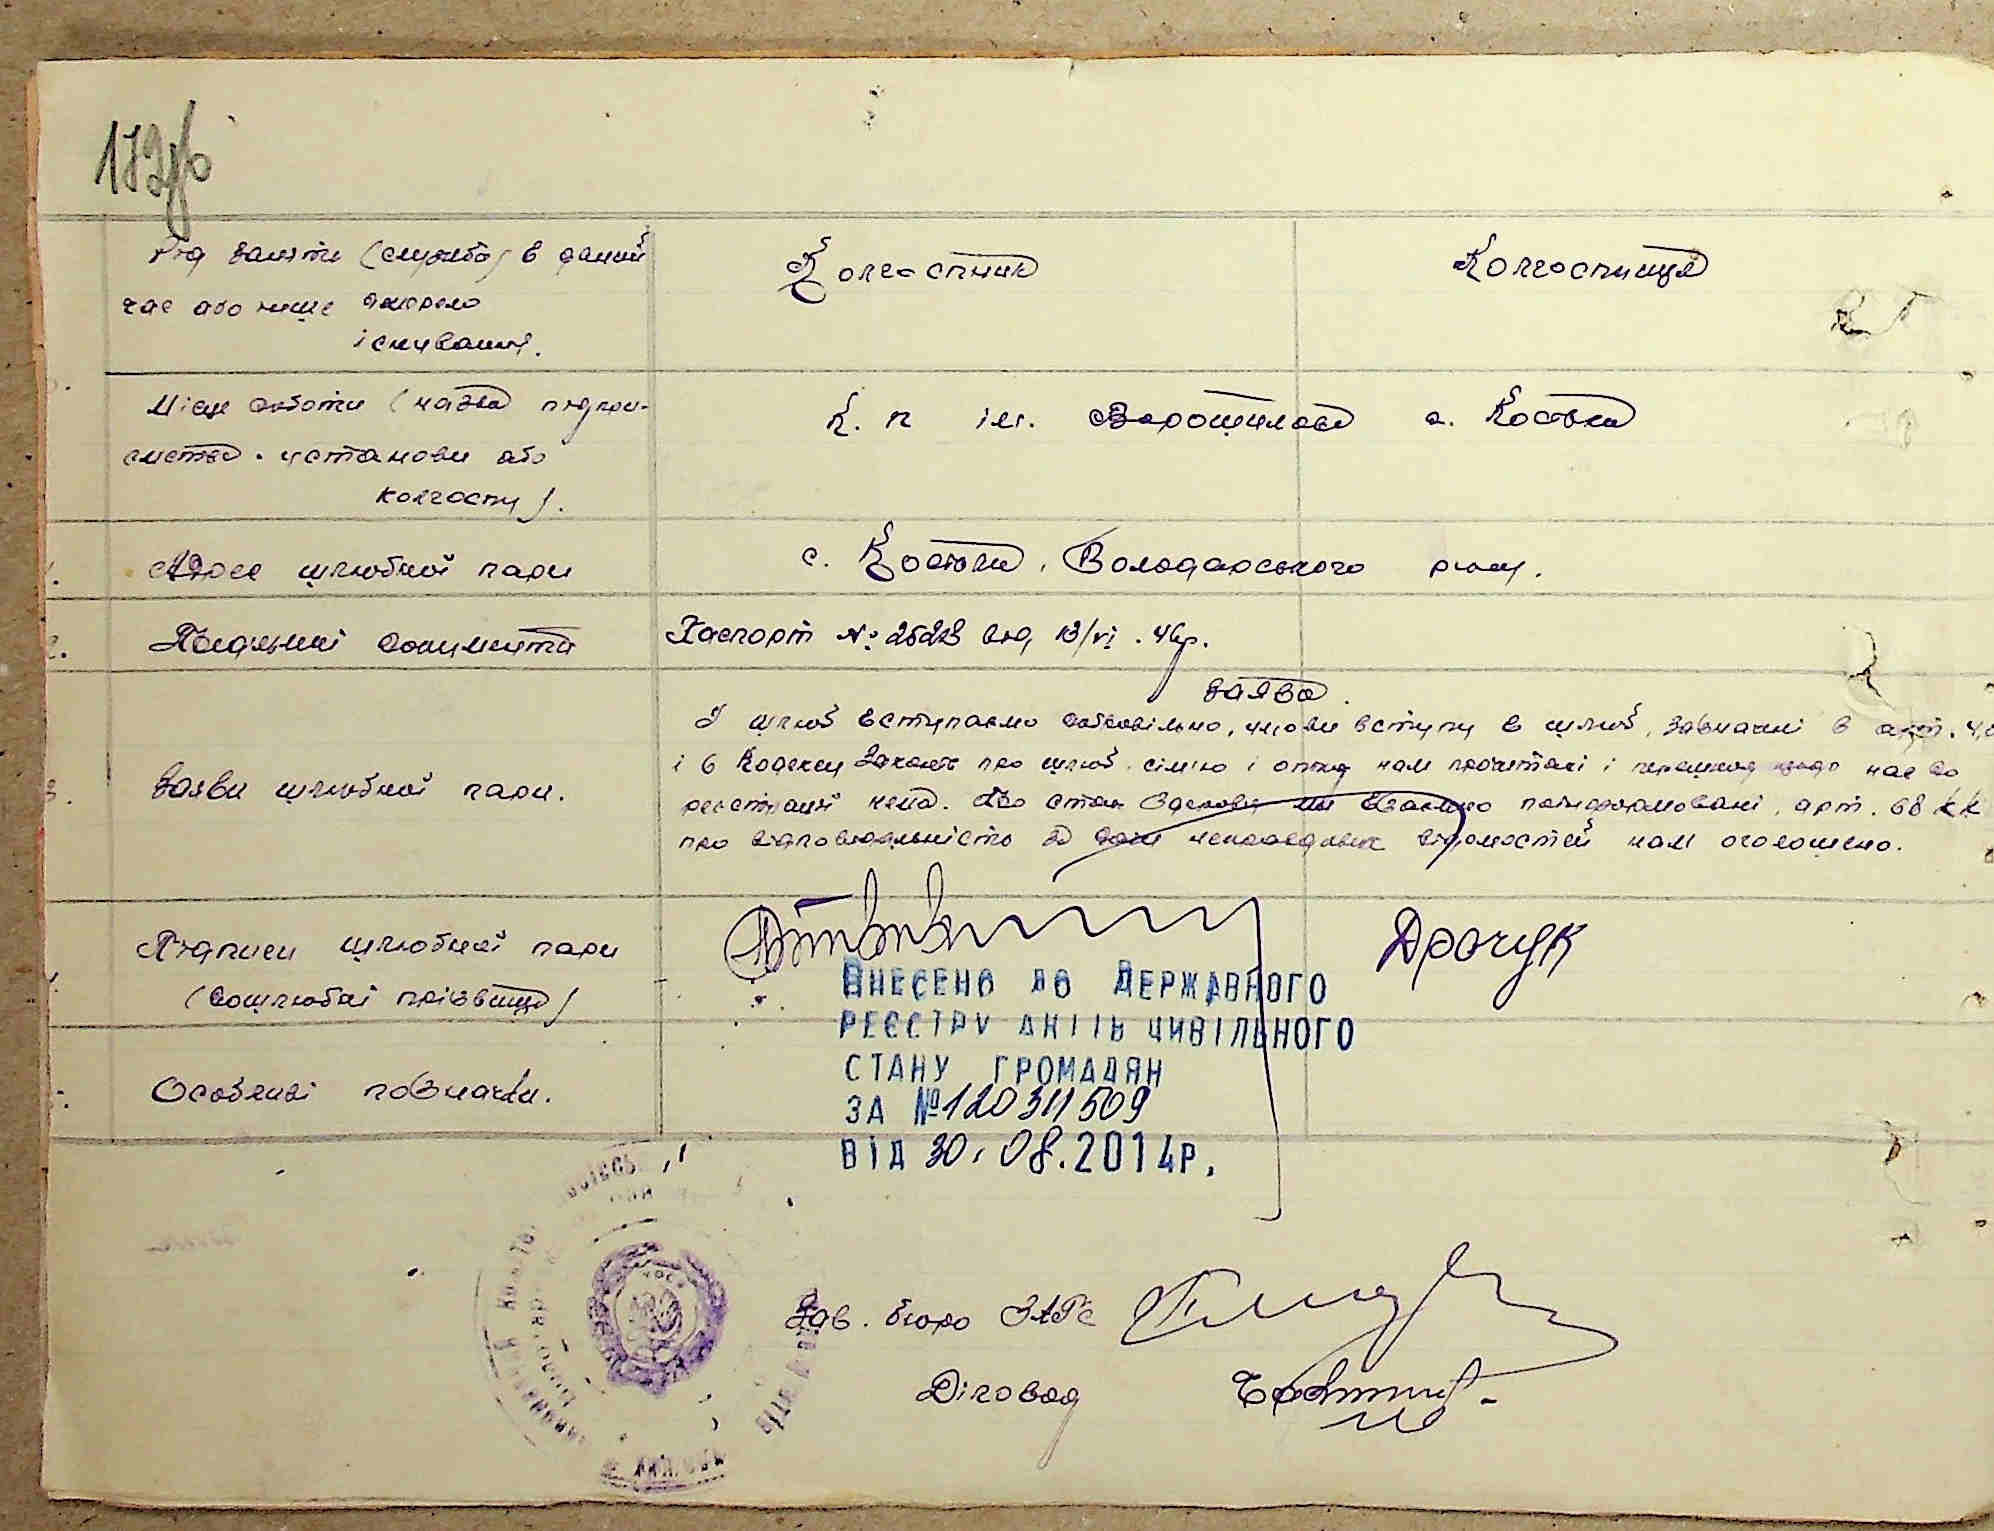 Рід заняття (служба) в даний
Колгоспник
Колгоспниця
час або інше джерело
існування.
Місце роботи (назва підпри-
ємства, установи або
колгоспу).
К. п ім. Ворошилова с. Косівка
Адреса шлюбної пари
с. Косівка, Володарського р-ну.
Пред'явлені документи
Паспорт №: від 13/VI. 46р.
Заява.
Заяви шлюбної пари.
У шлюб вступаємо добровільно, умови вступу в шлюб, зазначені в арт. 4,5
і 6 Кодексу Законів про шлюб, сім'ю і опіку нам прочитані і перешкод щодо нас до
реєстрації нема. Про стан здоров'я ми взаємно поінформовані, арт. 68 КК
про відповідальність за дачу неправдивих відомостей нам оголошено.
Підписи шлюбної пари
(дошлюбні прізвища)
Дрочук
Внесено до Державного
реєстру актів цивільного
стану громадян
за №120311509
від 30.08.2014р.
Особливі позначки.
Зав. бюро ЗАГС
Діловод